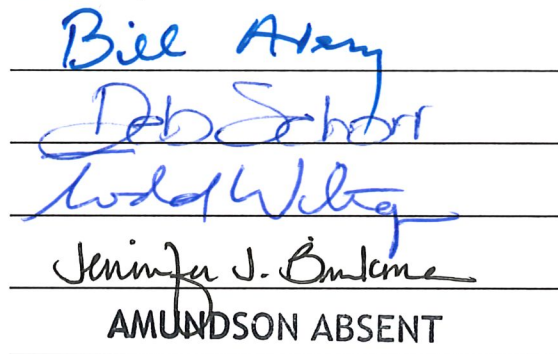 Bill Avery
Deb Schorr
Todd Wiltgen
Jennifer J. Brinkman
AMUNDSON ABSENT